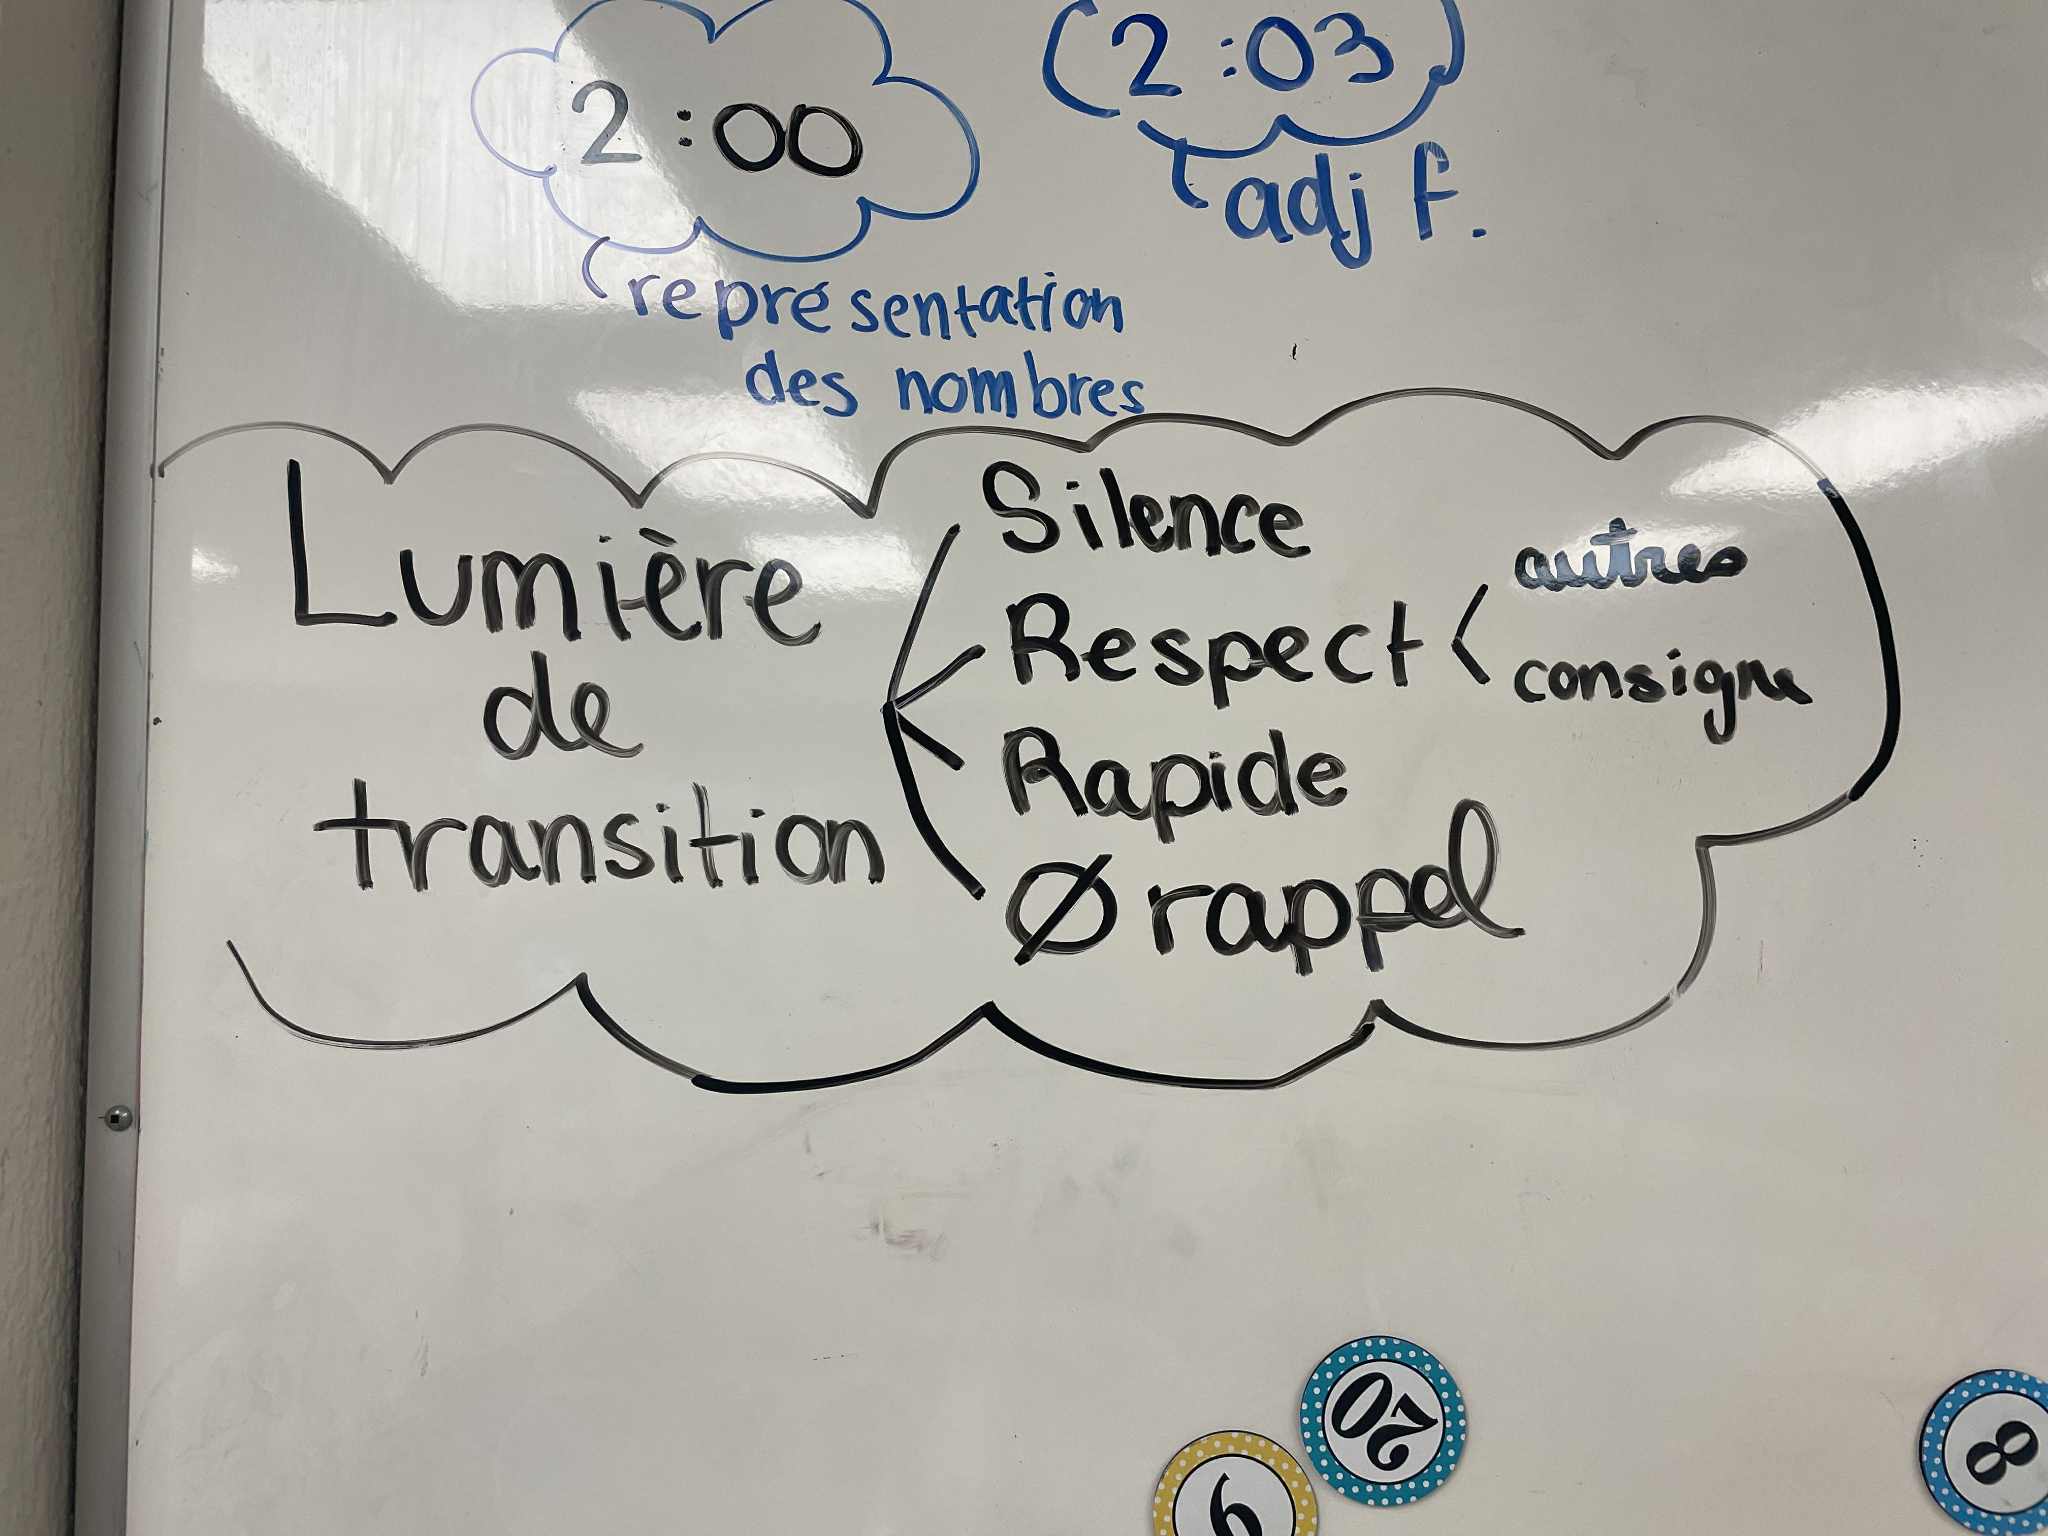 2:00
(2:03)
adj f.
représentation
des nombres
Lumière
de
transition
Silence
Respect < autres
consigne
Rapide
Ø rappel
20
9
8